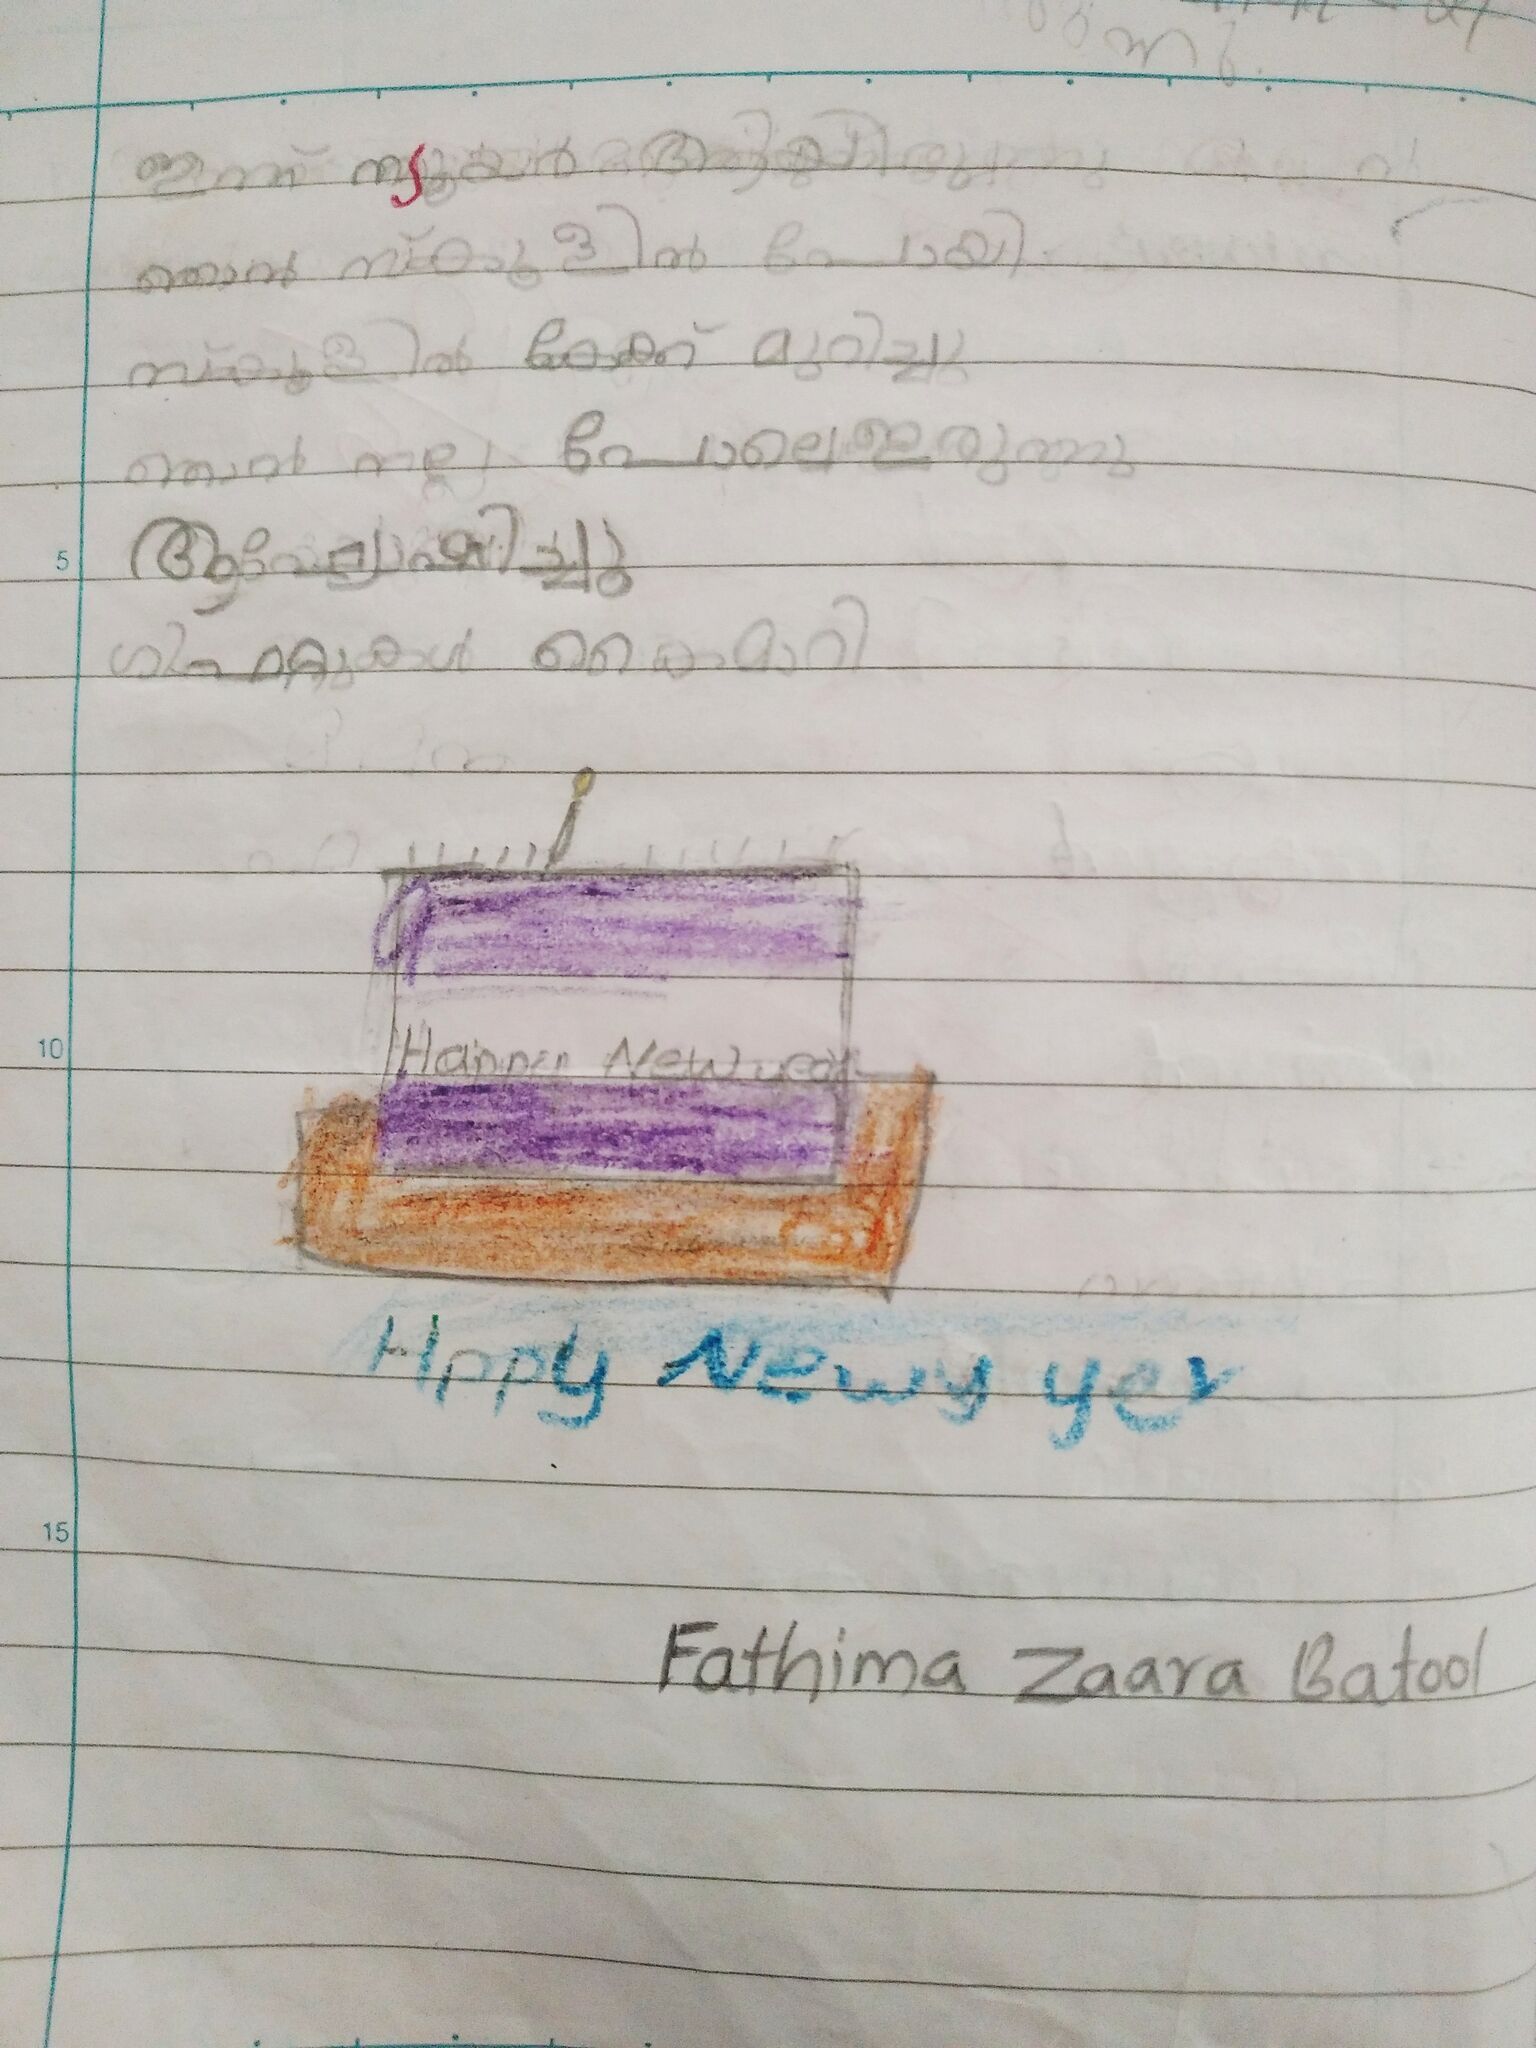 ഇന്ന് ന്യൂയർ ആയിരുന്നു
ഞാൻ സ്കൂളിൽ പോയി.
സ്കൂളിൽ കേക്ക് മുറിച്ചു
ഞാൻ നല്ല പോലെ ഇരുന്നു
ഗിഫ്റ്റുകൾ കൈമാറി
5
10
Happy New year
Hppy Newy yer
15
Fathima Zaara Batool